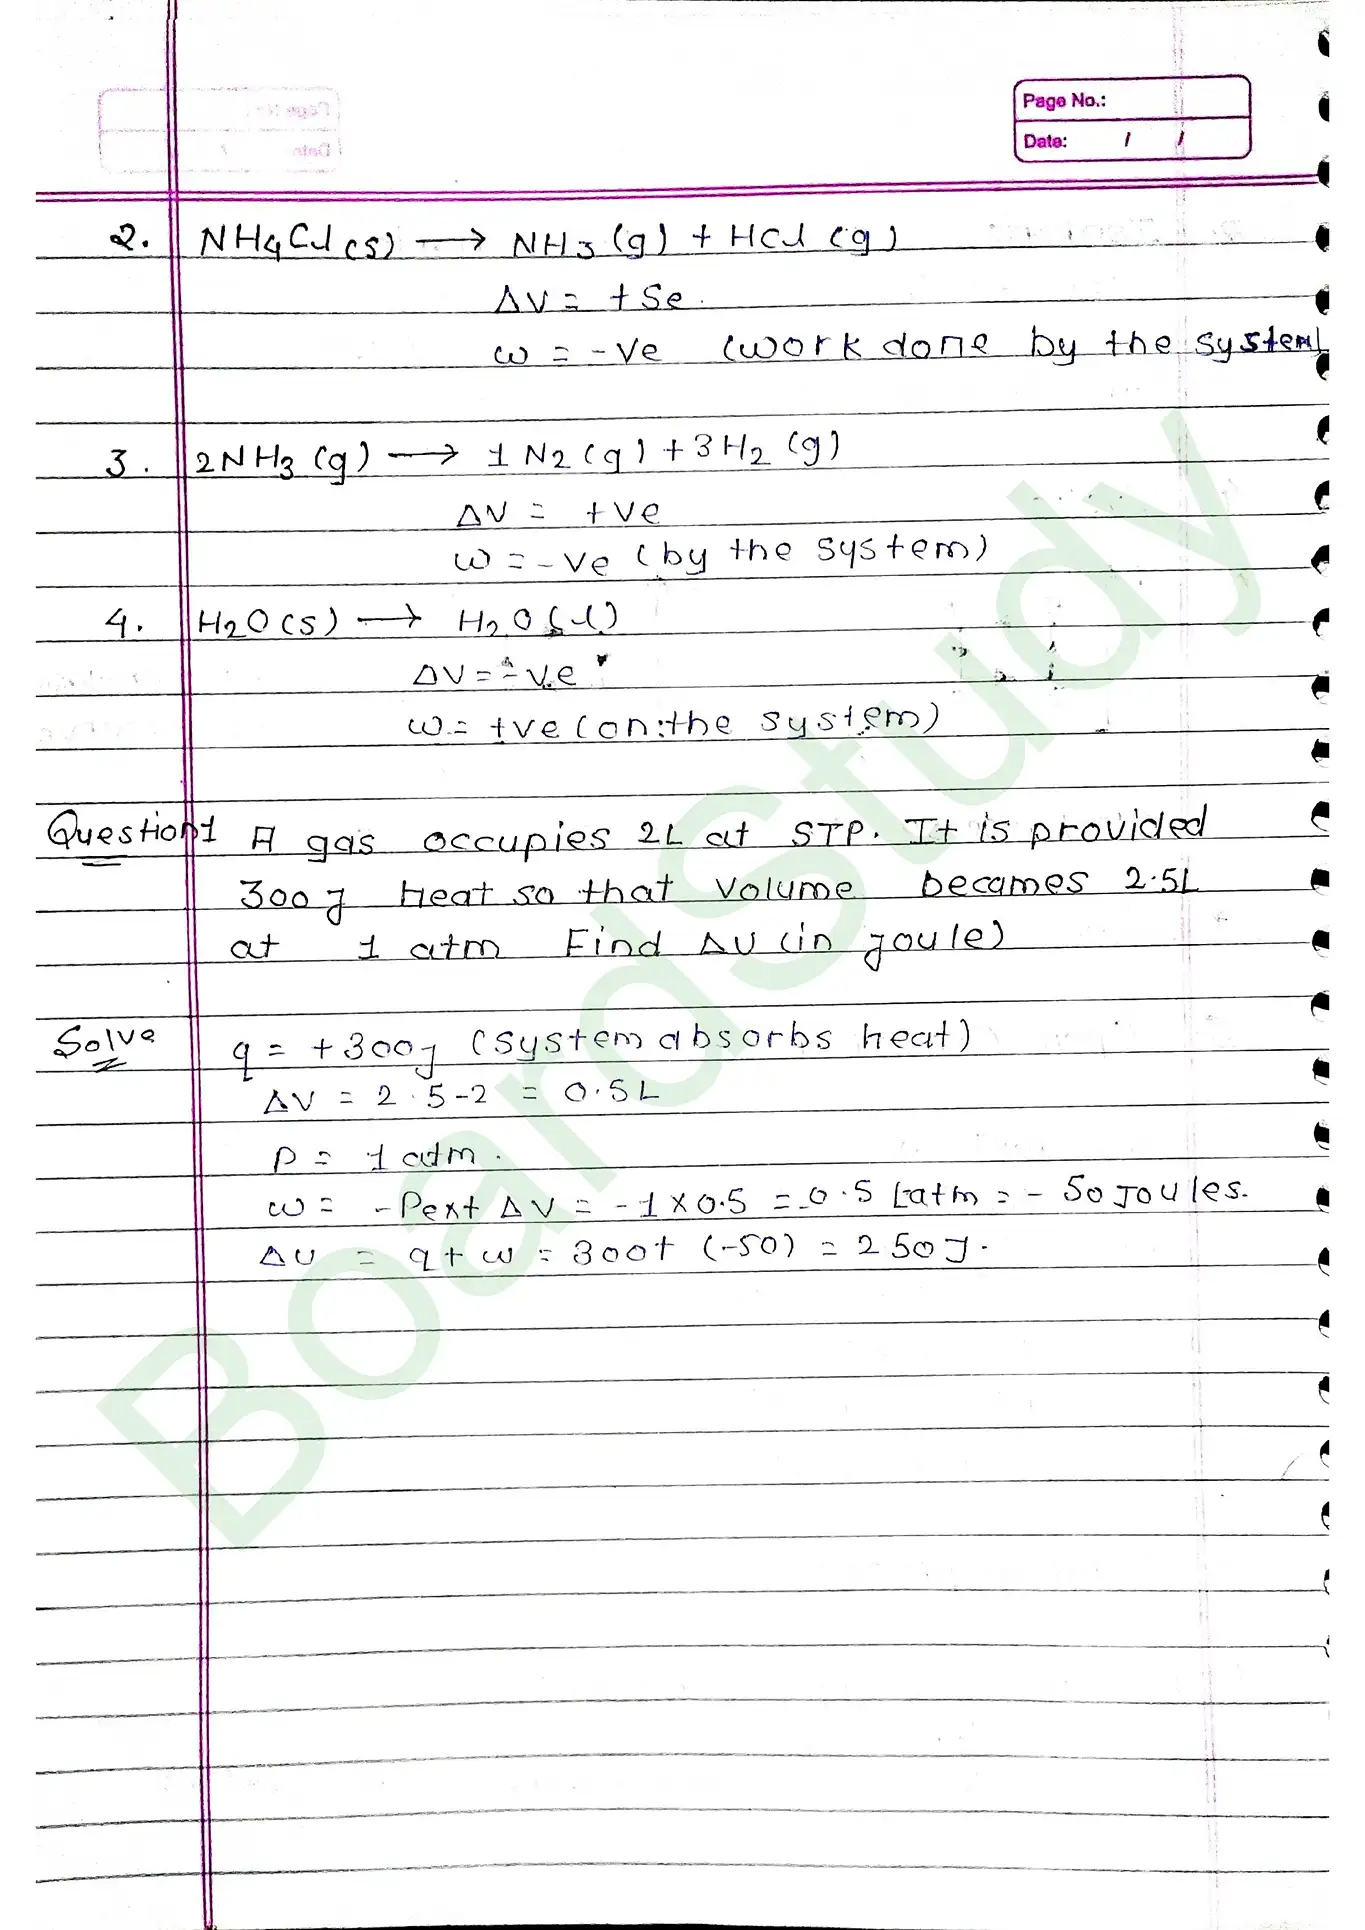 Page No.:
Date: / /
2. NH4Cl (s) → NH3 (g) + HCl (g)
ΔV = +Se.
w = -ve (work done by the system)
3. 2NH3 (g) → 1 N2 (g) + 3H2 (g)
ΔV = +ve
w = -ve (by the system)
4. H2O (s) → H2O (l)
ΔV = -ve
w = +ve (on the system)
Question1 A gas occupies 2L at STP. It is provided
300 J Heat so that Volume becames 2.5L
at 1 atm Find ΔU (in joule)
Solve q = +300J (system absorbs heat)
ΔV = 2.5-2 = 0.5L
P = 1 atm.
w = -Pext ΔV = -1 x 0.5 = -0.5 L-atm = -50 Joules.
ΔU = q + w = 300+ (-50) = 250J.
BoardStudy